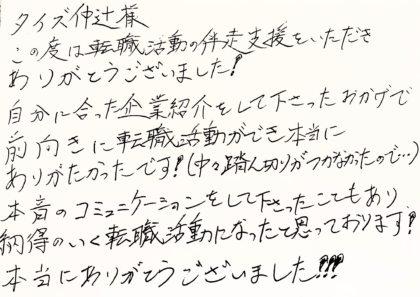 タイズ仲辻様
この度は転職活動の伴走支援をいただき
ありがとうございました!
自分に合った企業紹介をして下さったおかげで
前向きに転職活動ができ本当に
ありがたかったです!(中々踏ん切りがつかなかったので…)
本音のコミュニケーションをして下さったこともあり
納得のいく転職活動になったと思っております!
本当にありがとうございました!!!